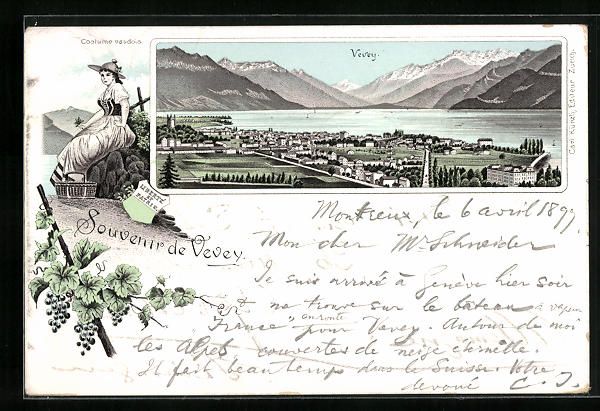 Costume vaudois
Vevey.
Carl Künzli, Editeur Zürich.
LIBERTÉ
ET
PATRIE
Souvenir de Vevey.
Montreux, le 6 avril 189
Mon cher Mr Schneider
Je suis arrivé à Genève hier soir
et me trouve sur le bateau à vapeur
France en route pour Vevey. Autour de moi
les Alpes couvertes de neige éternelle.
Il fait beau temps dans la Suisse. Votre
devoué C. J.